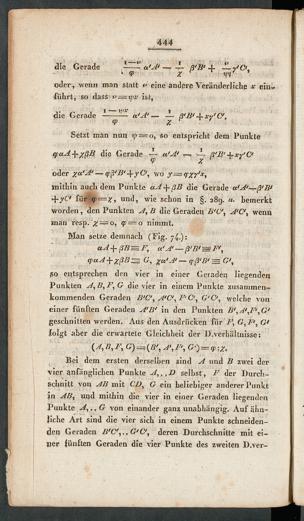 444
die Gerade (1−ν)/φ α'A' − 1/χ β'B' + ν/ψ γ'C',
oder, wenn man statt ν eine andere Veränderliche x ein-
führt, so dass ν=ψx ist,
die Gerade (1−ψx)/φ α'A' − 1/χ β'B' + xγ'C'.
Setzt man nun ψ=0, so entspricht dem Punkte
φαA+χβB die Gerade 1/φ α'A' − 1/χ β'B' + xγ'C'
oder χα'A'−φβ'B'+yC', wo y=φχγ'x,
mithin auch dem Punkte αA+βB die Gerade α'A'−β'B'
+yC' für φ=χ, und, wie schon in §. 289. a. bemerkt
worden, den Punkten A, B die Geraden B'C', A'C', wenn
man resp. χ=0, φ=0 nimmt.
Man setze demnach (Fig. 74.):
αA+βB≡F, α'A'−β'B'≡F',
φαA+χβB≡G, χα'A'−φβ'B'≡G',
so entsprechen den vier in einer Geraden liegenden
Punkten A, B, F, G die vier in einem Punkte zusammen-
kommenden Geraden B'C', A'C', F'C', G'C', welche von
einer fünften Geraden A'B' in den Punkten B', A', F', G'
geschnitten werden. Aus den Ausdrücken für F, G, F', G'
folgt aber die erwartete Gleichheit der D.verhältnisse:
(A, B, F, G)=(B', A', F', G')=φ:χ.
Bei dem ersten derselben sind A und B zwei der
vier anfänglichen Punkte A,..D selbst, F der Durch-
schnitt von AB mit CD, G ein beliebiger anderer Punkt
in AB, und mithin die vier in einer Geraden liegenden
Punkte A,..G von einander ganz unabhängig. Auf ähn-
liche Art sind die vier sich in einem Punkte schneiden-
den Geraden B'C',..G'C', deren Durchschnitte mit ei-
ner fünften Geraden die vier Punkte des zweiten D.ver-